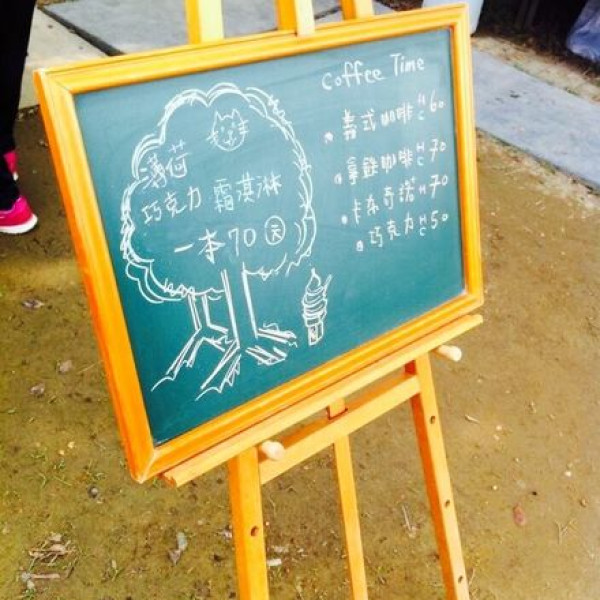 薄荷
巧克力 霜淇淋
一本70元
Coffee Time
美式咖啡 H C 60
拿鐵咖啡 H C 70
卡布奇諾 H 70
巧克力 H C 50